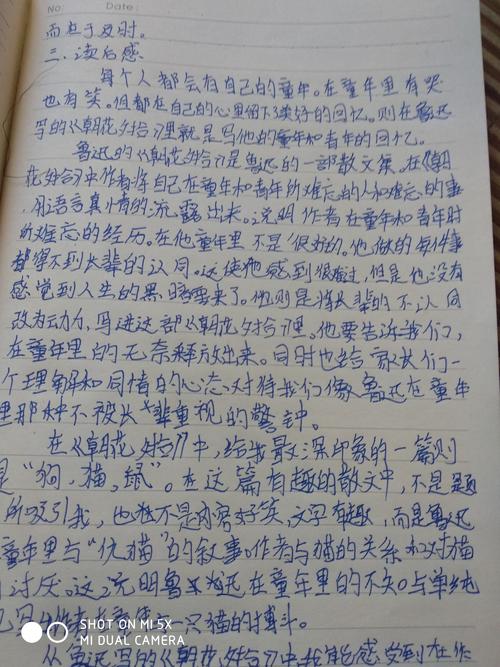 No:    Date:
而在于及时。
三、读后感
每个人都会有自己的童年。在童年里有哭
也有笑。但都在自己的心里留下了美好的回忆。则在鲁迅
写的《朝花夕拾》里就是写他的童年和青年的回忆。
鲁迅的《朝花夕拾》是鲁迅的一部散文集。在《朝
花夕拾》中作者将自己在童年和青年所难忘的人和难忘的事
用语言真情的流露出来。说明作者在童年和青年时
所难忘的经历。在他童年里不是很好的。他做的每件事
都得不到长辈的认同。这使他感到很难过,但是他没有
感觉到人生的黑暗要来了。他则是将长辈的不认同
改为动力,写进这部《朝花夕拾》里。他要告诉我们,
在童年里的无奈释放出来。同时也给家长们一
个理解和同情的心态对待我们像鲁迅在童年
里那种不被长辈重视的警钟。
在《朝花夕拾》中,给我最深印象的一篇则
是“狗,猫,鼠”。在这篇有趣的散文中,不是题
所吸引我,也不是内容好笑,文字有趣,而是鲁迅
童年里与“仇猫”的叙事。作者与猫的关系和对猫
讨厌。这说明鲁迅在童年里的不失与单纯
一只猫的搏斗。
从鲁迅写的《朝花夕拾》中我能感觉到在作
SHOT ON MI 5X
MI DUAL CAMERA